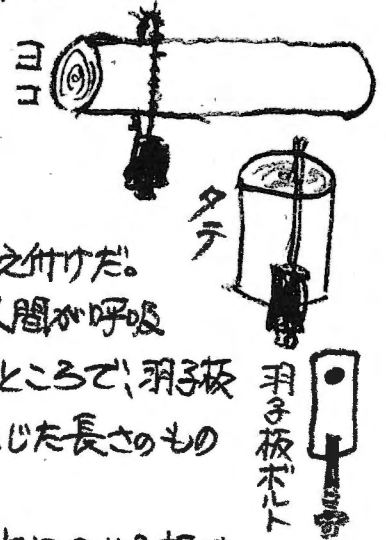 ヨコ
タテ
え付けだ。
人間が呼吸
ところで、羽子板
じた長さのもの
羽子板ボルト